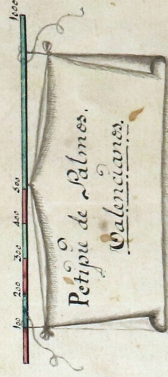 100 200 300 400 500 1000
Petipie de Palmos,
Valencianos.